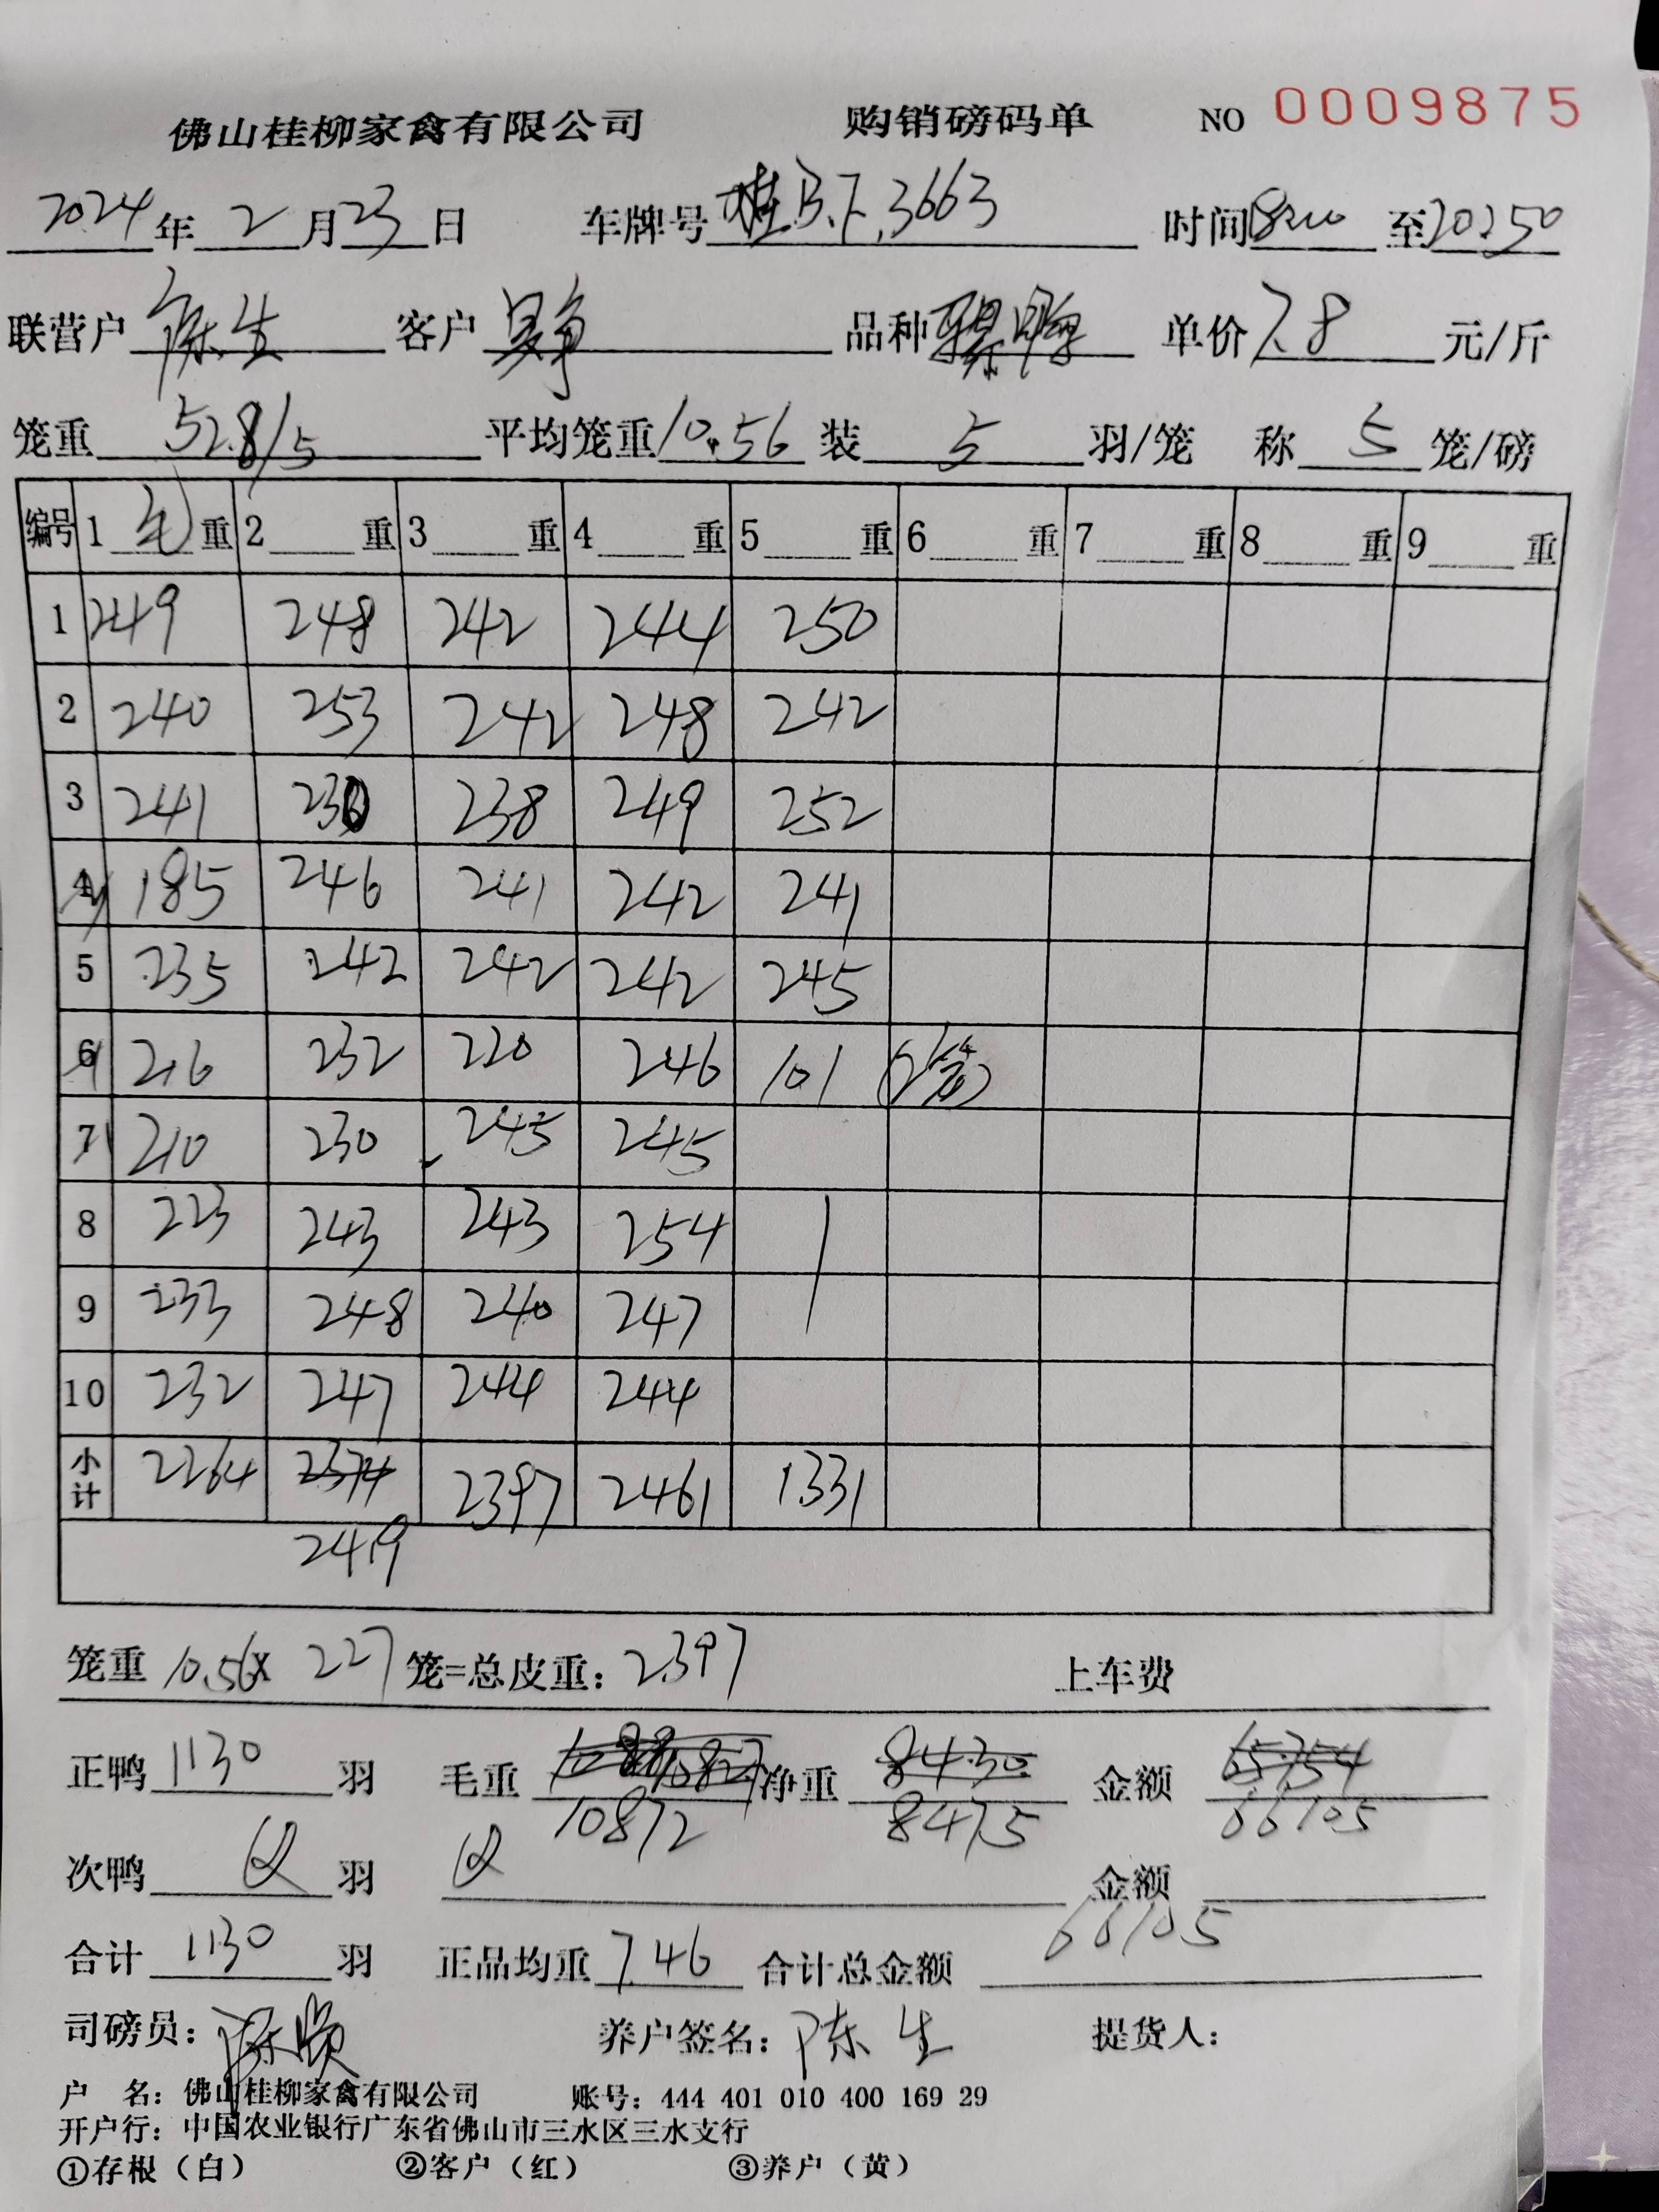 佛山桂柳家禽有限公司 购销磅码单 NO 0009875
2024年2月23日 车牌号桂B.F.3663 时间 至20:50
联营户陈生 客户 品种 单价7.8元/斤
笼重52.8/5 平均笼重10.56 装5羽/笼 称5笼/磅
编号 1毛重 2重 3重 4重 5重 6重 7重 8重 9重
1 249 248 242 244 250
2 240 253 242 248 242
3 241 230 238 249 252
4 185 246 241 242 241
5 235 242 242 242 245
6 216 232 220 246 101 (2笼)
7 210 230 245 245
8 223 243 243 254
9 233 248 240 247
10 232 247 244 244
小计 2264 2374 2397 2461 1331
2419
笼重10.56X 227笼=总皮重:2397 上车费
正鸭1130羽 毛重 净重8430 金额65754
10872 8475 66105
次鸭 羽 金额
合计1130羽 正品均重7.46 合计总金额66105
司磅员: 养户签名:陈生 提货人:
户 名:佛山桂柳家禽有限公司 账号:444 401 010 400 169 29
开户行:中国农业银行广东省佛山市三水区三水支行
①存根(白) ②客户(红) ③养户(黄)